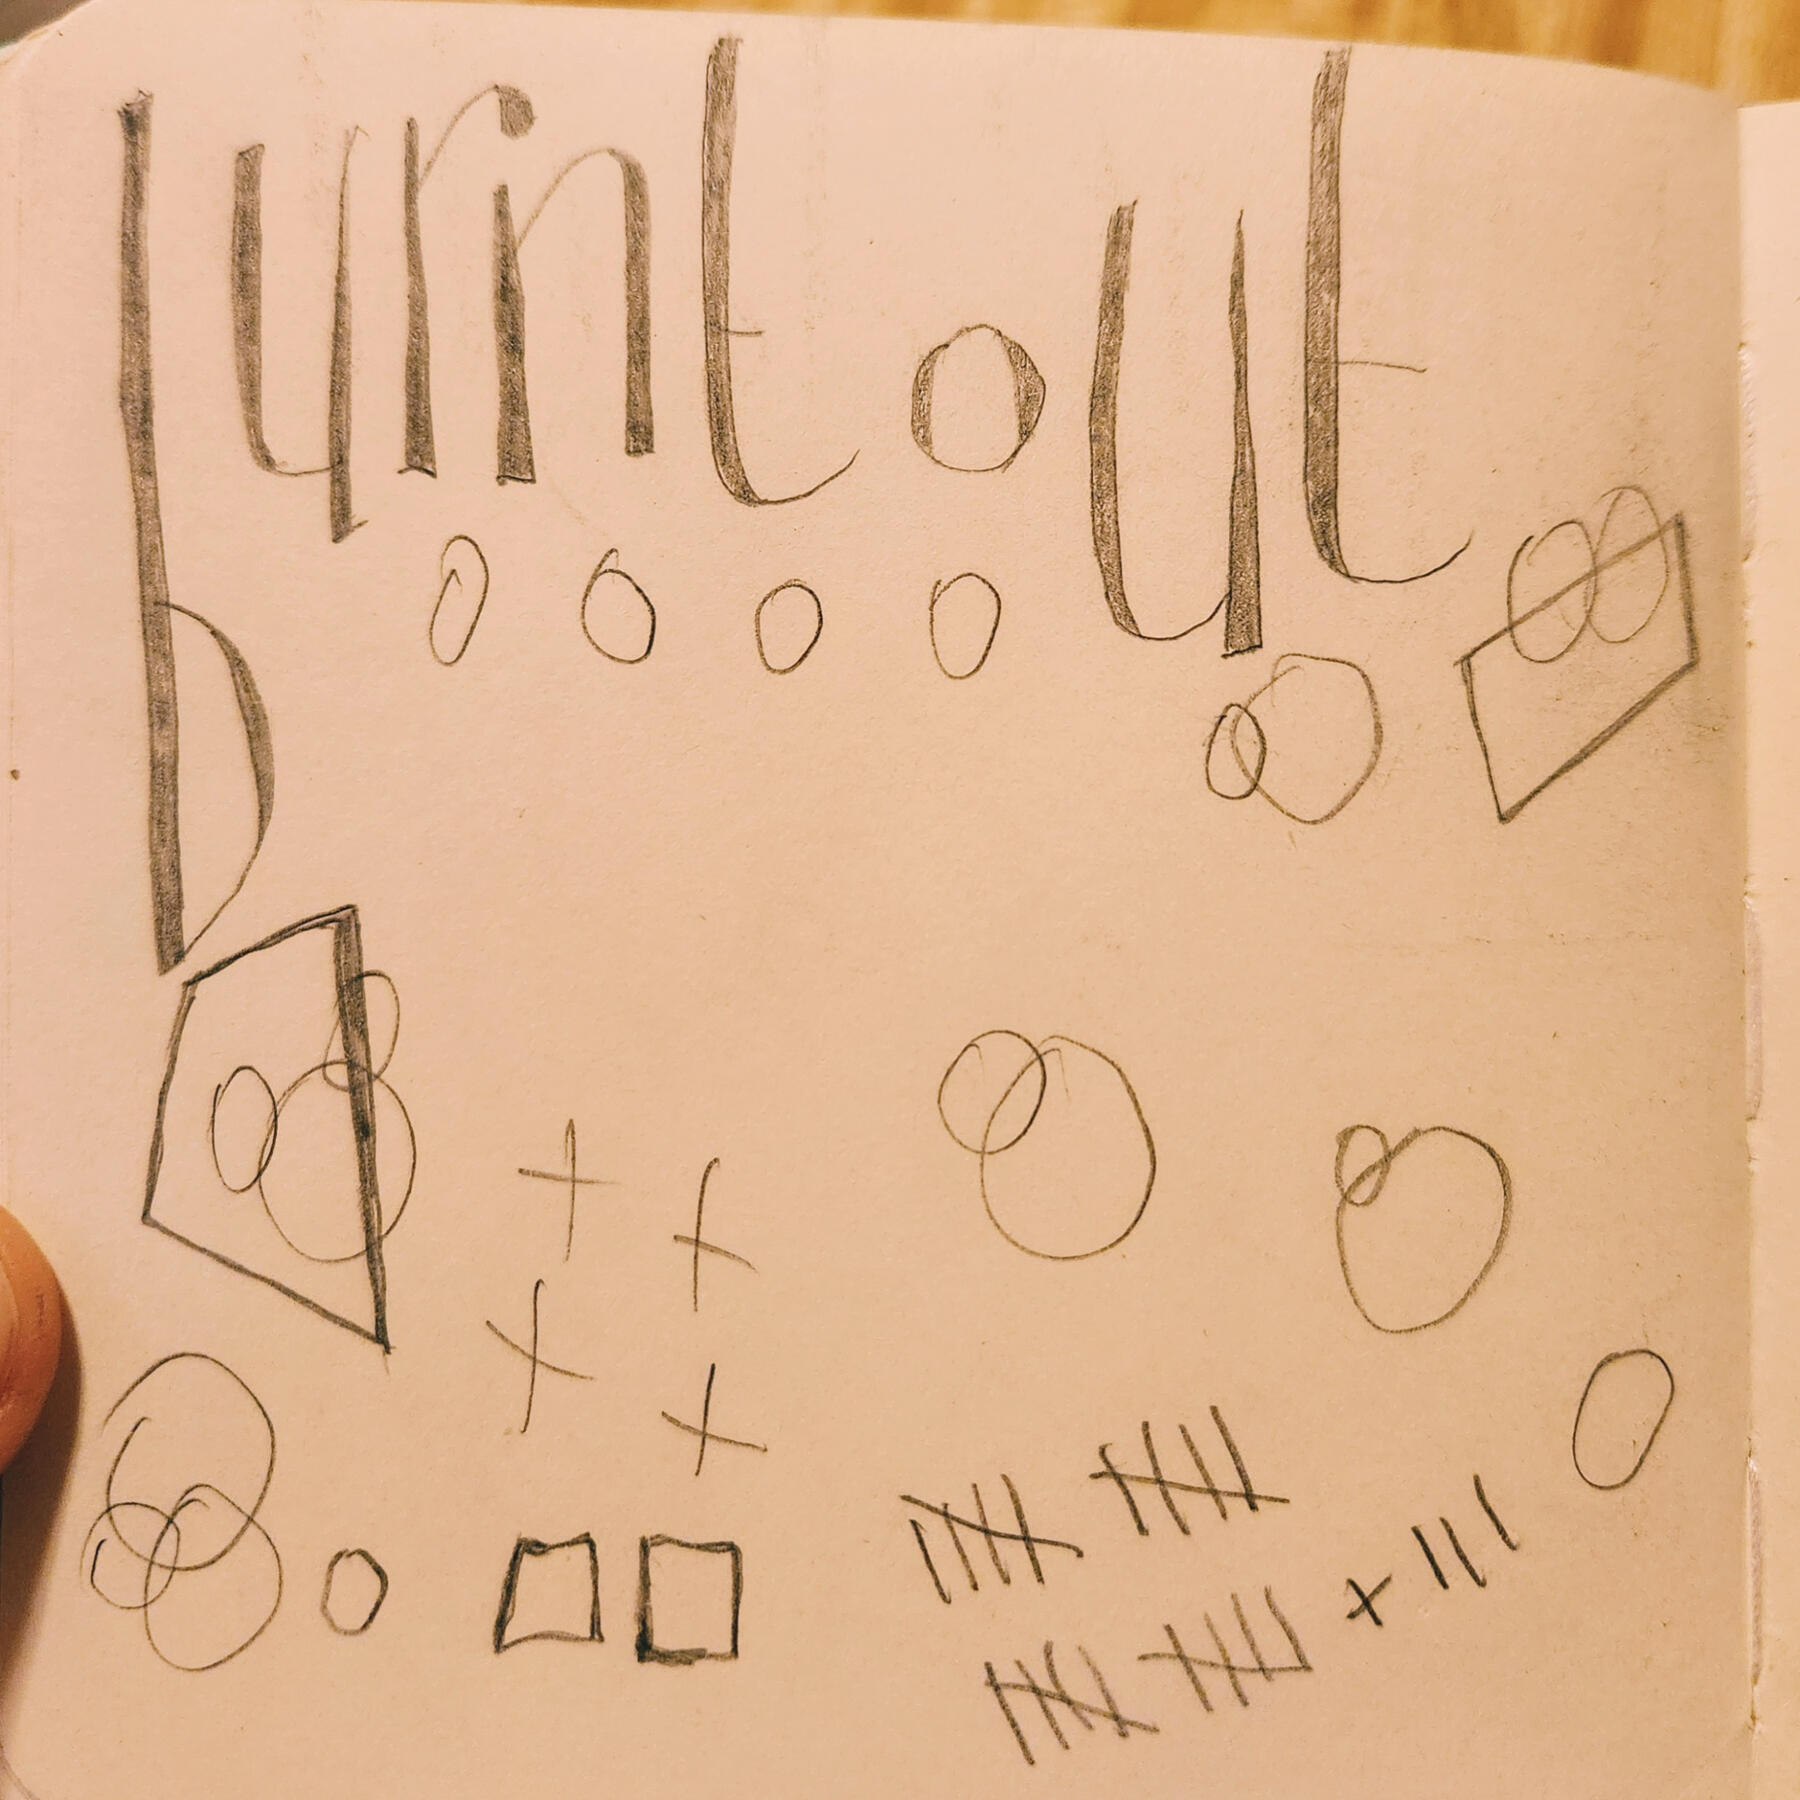 burnt out